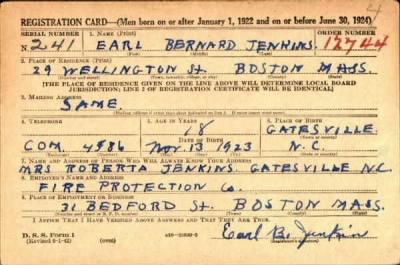 4
REGISTRATION CARD—(Men born on or after January 1, 1922 and on or before June 30, 1924)
SERIAL NUMBER 1. NAME (Print) ORDER NUMBER
N. 241 EARL BERNARD JENKINS. 12744
2. PLACE OF RESIDENCE (Print)
29 WELLINGTON St. BOSTON MASS.
[THE PLACE OF RESIDENCE GIVEN ON THE LINE ABOVE WILL DETERMINE LOCAL BOARD
JURISDICTION; LINE 2 OF REGISTRATION CERTIFICATE WILL BE IDENTICAL]
3. MAILING ADDRESS
SAME.
4. TELEPHONE 5. AGE IN YEARS 6. PLACE OF BIRTH
18 GATESVILLE.
DATE OF BIRTH
COM. 4986 Nov. 13 1923 N.C.
7. NAME AND ADDRESS OF PERSON WHO WILL ALWAYS KNOW YOUR ADDRESS
MRS ROBERTA JENKINS. GATESVILLE N.C.
8. EMPLOYER'S NAME AND ADDRESS
FIRE PROTECTION Co.
9. PLACE OF EMPLOYMENT OR BUSINESS
31 BEDFORD St. BOSTON MASS.
I AFFIRM THAT I HAVE VERIFIED ABOVE ANSWERS AND THAT THEY ARE TRUE.
D. S. S. Form 1
Earl B. Jenkins